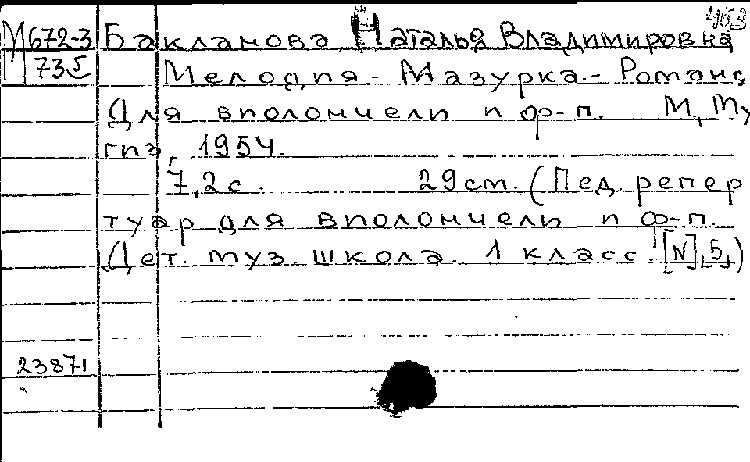 463
М672-3 Бакланова Наталья Владимировна
735 Мелодия - Мазурка - Романс
Для виолончели и ф-п. М, Му
гиз, 1954.
7,2 с. 29 см. (Пед. репер
туар для виолончели и ф-п.
Дет. муз. школа. 1 класс. [N],5,)
23871